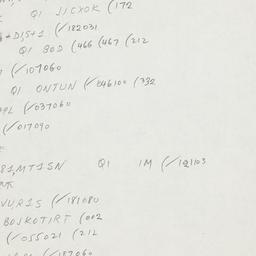 QI JJCXOK (172
+DJS+1 (✓182031
QI BOD (466 (467 (212
(✓107060
QI ONTUN (✓046100 (332
PL (✓037060
(✓017090
81,MT1SN QI 1M (✓121103
VUR1S (✓181080
BOJKOTIRT (002
(✓055021 (212
(✓187060